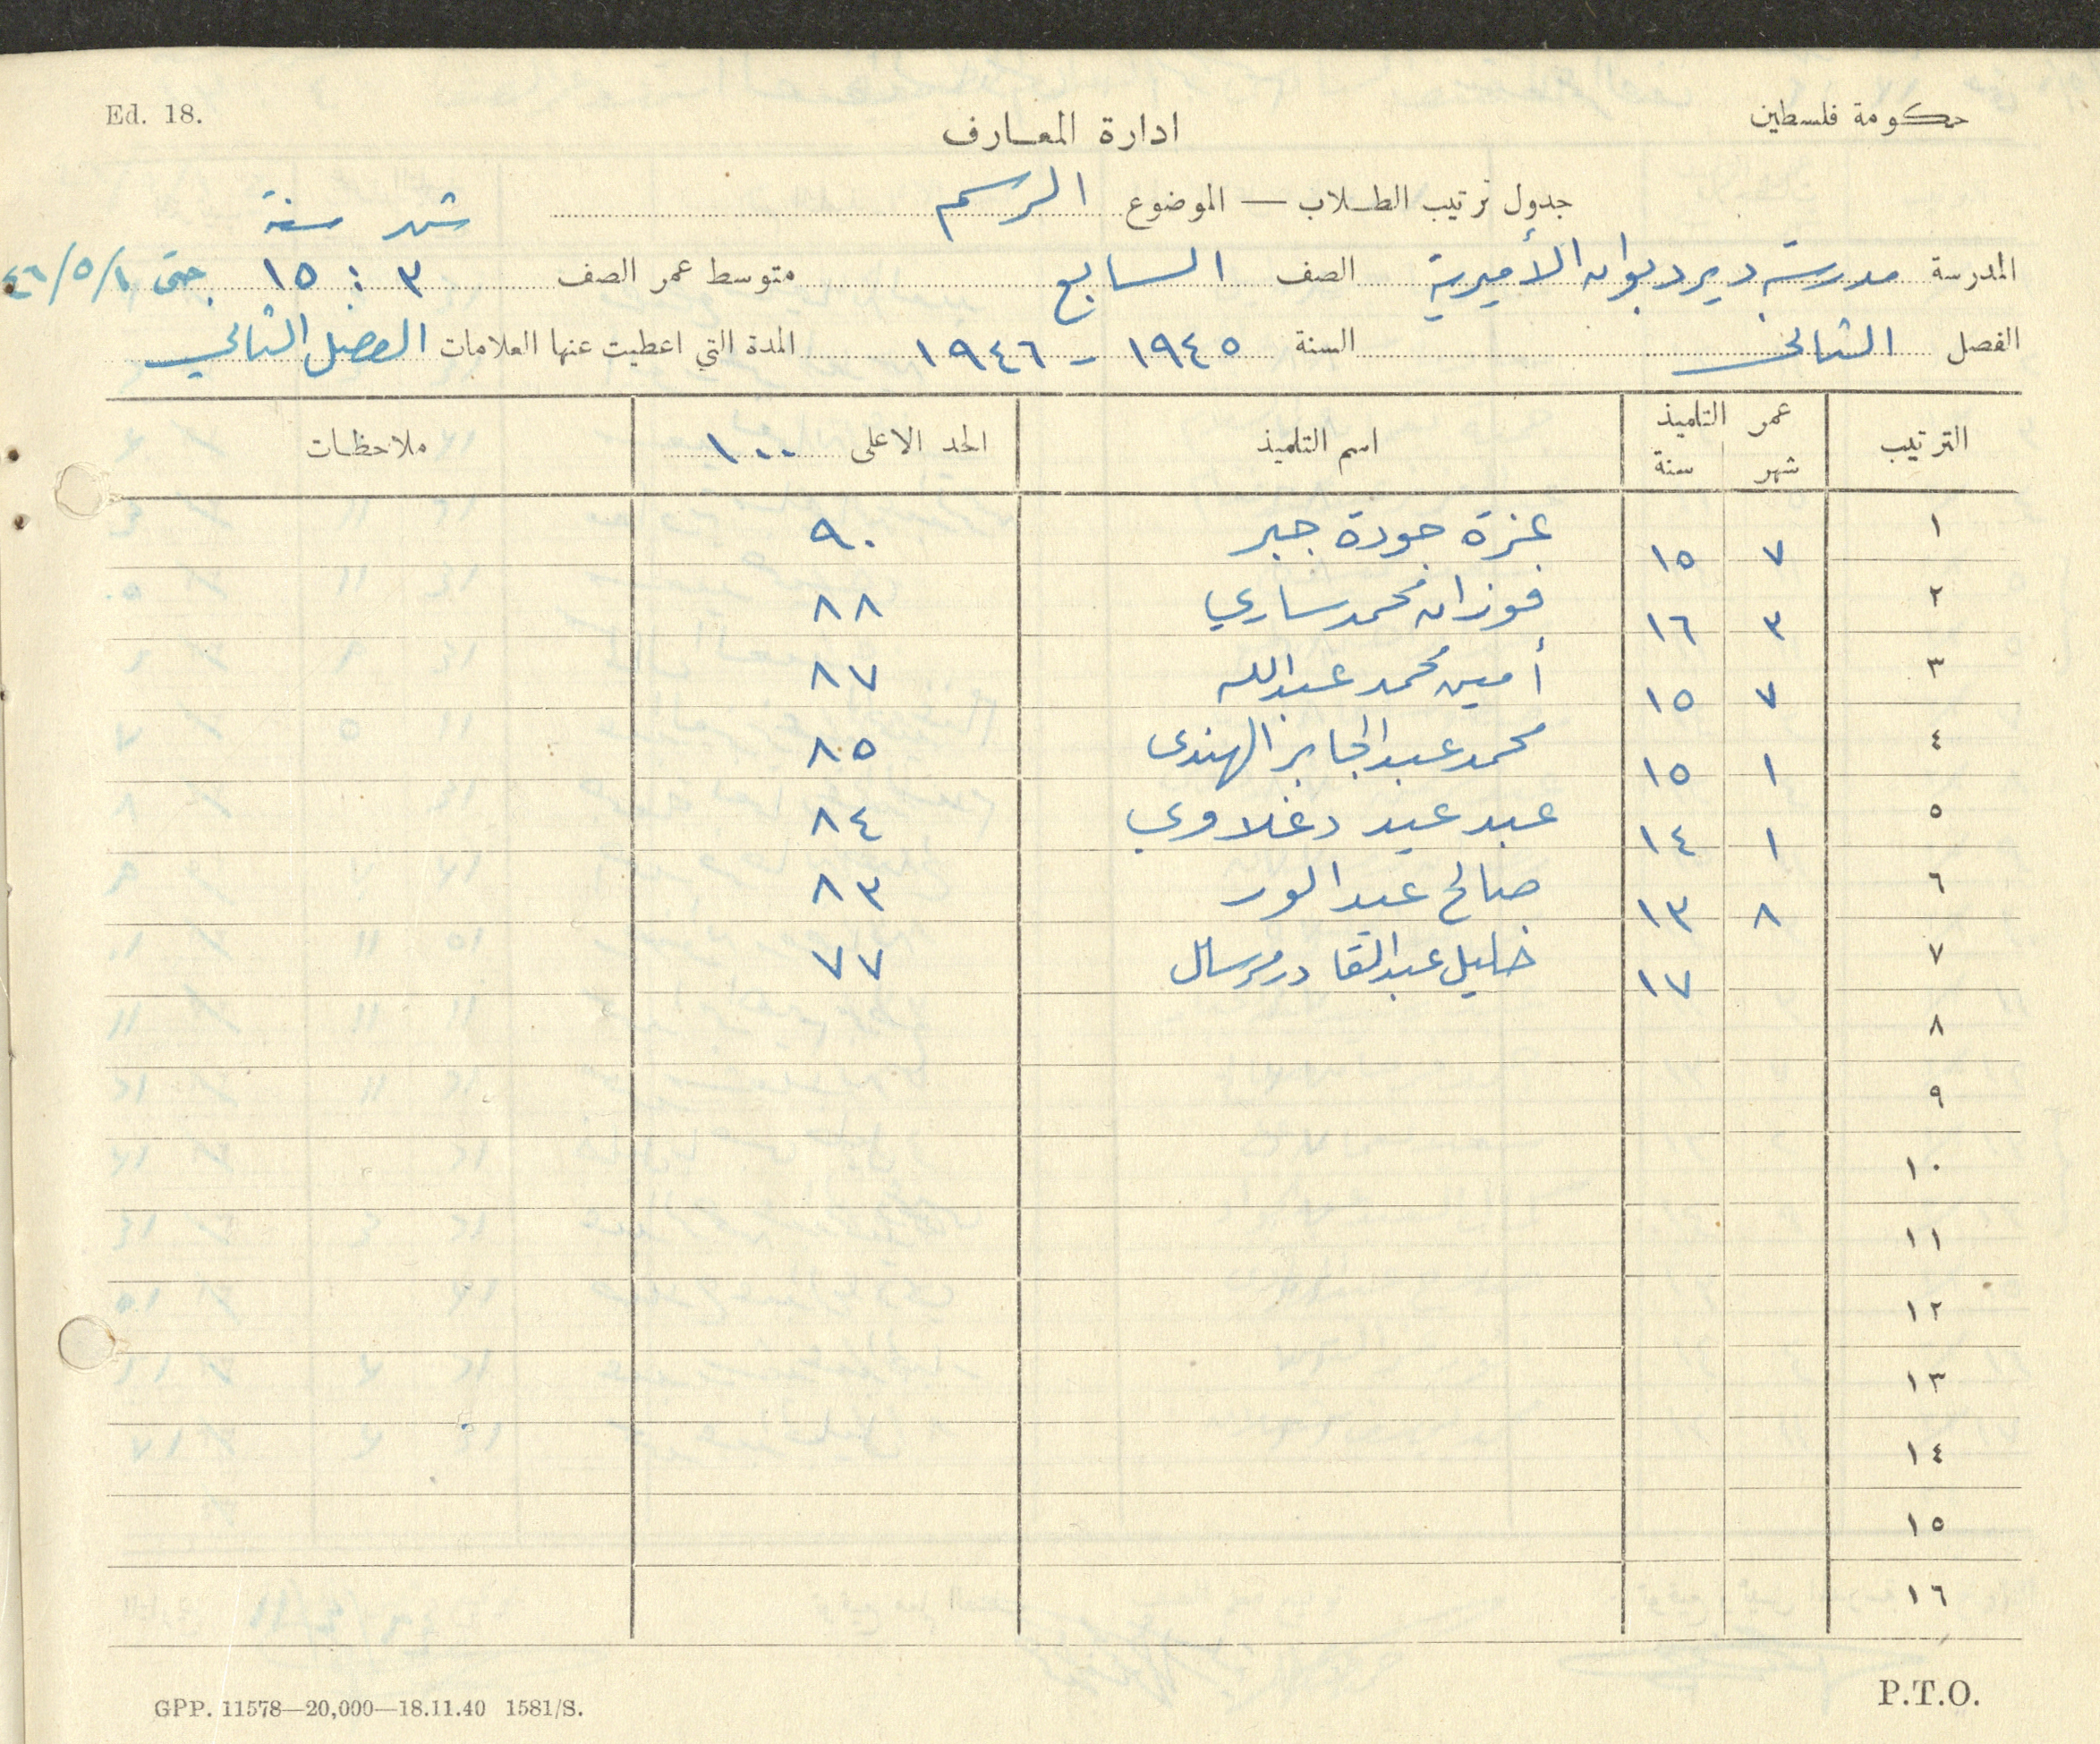 Ed. 18.
حكومة فلسطين
ادارة المعارف
جدول ترتيب الطلاب — الموضوع الرسم
شهر سنة
المدرسة مدرسة ديرديوان الأميرية الصف السابع متوسط عمر الصف ٣ : ١٥ حتى ٤٦/٥/١
الفصل الثاني السنة ١٩٤٥ - ١٩٤٦ المدة التي اعطيت عنها العلامات الفصل الثاني
الترتيب عمر التلميذ شهر سنة اسم التلميذ الحد الاعلى ١٠٠ ملاحظات
١ ٧ ١٥ عزة جودة جبر ٩٠
٢ ٣ ١٦ فوزان محمد ساري ٨٨
٣ ٧ ١٥ أمين محمد عبدالله ٨٧
٤ ١ ١٥ محمد عبد الجابر الهندي ٨٥
٥ ١ ١٤ عبد عيد دغلاوي ٨٤
٦ ٨ ١٣ صالح ٨٣
٧ ١٧ خليل عبدالقادر ٧٧
٨
٩
١٠
١١
١٢
١٣
١٤
١٥
١٦
GPP. 11578—20,000—18.11.40 1581/S.
P.T.O.